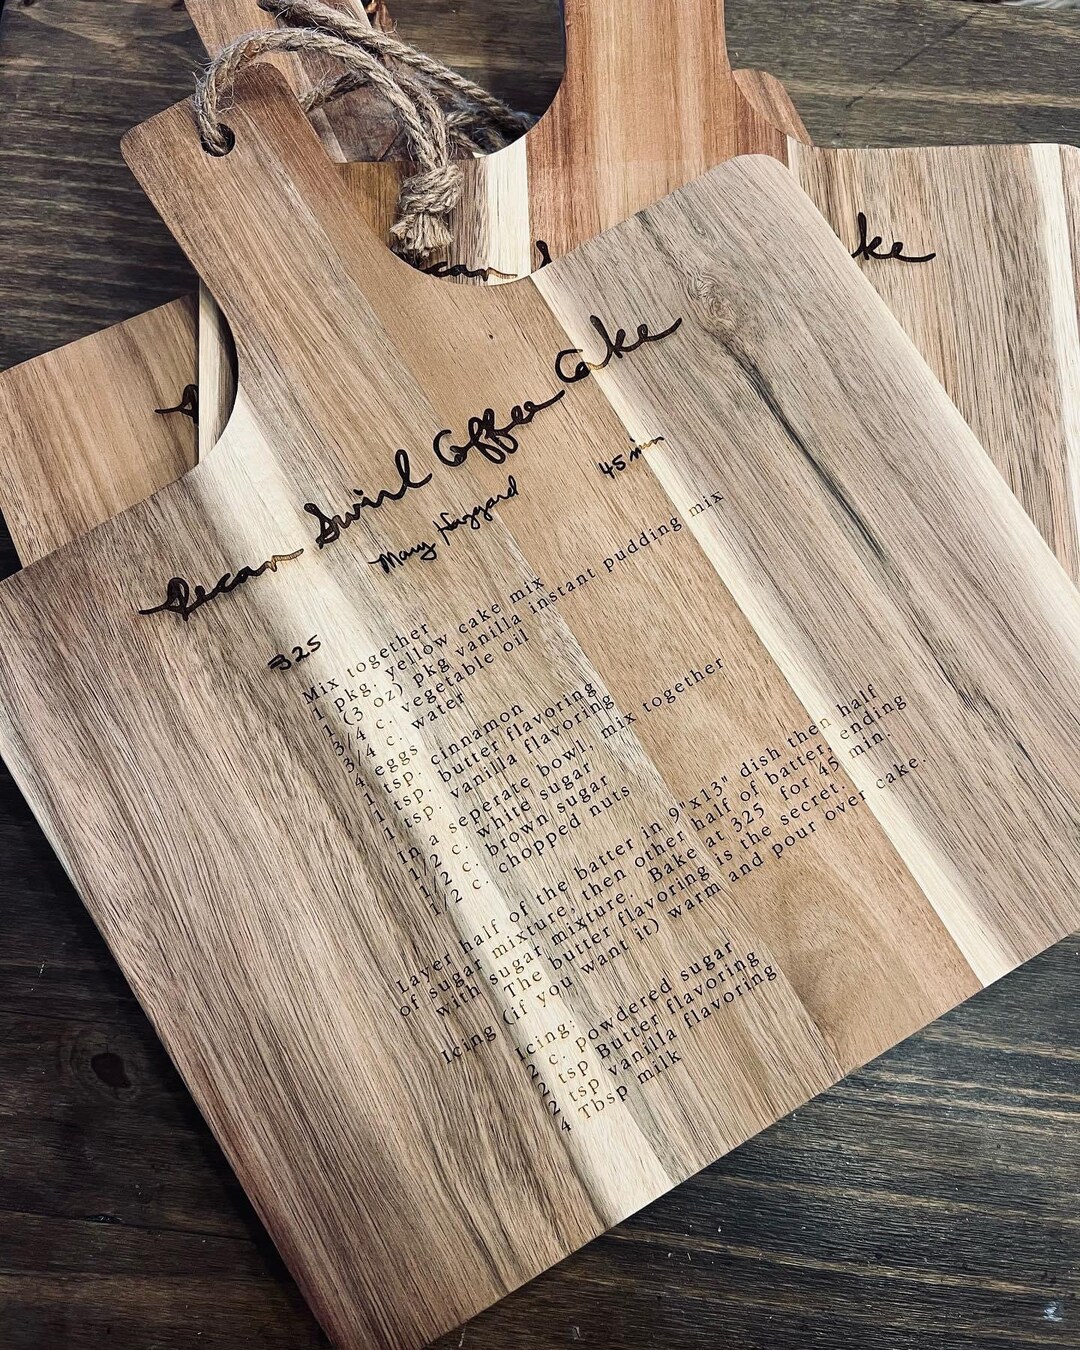 Pecan Swirl Coffee Cake
Mary Hazzard
325
45 min
Mix together
1 pkg. yellow cake mix
1 (3 oz) pkg vanilla instant pudding mix
3/4 c. vegetable oil
3/4 c. water
4 eggs
1 tsp. cinnamon
1 tsp. butter flavoring
1 tsp. vanilla flavoring
In a seperate bowl, mix together
1/2 c. white sugar
1/2 c. brown sugar
1/2 c. chopped nuts
Layer half of the batter in 9"x13" dish then half
of sugar mixture, then other half of batter, ending
with sugar mixture. Bake at 325 for 45 min.
The butter flavoring is the secret.
Icing (if you want it) warm and pour over cake.
Icing:
2 c. powdered sugar
2 tsp Butter flavoring
2 tsp vanilla flavoring
4 Tbsp milk
can
ke